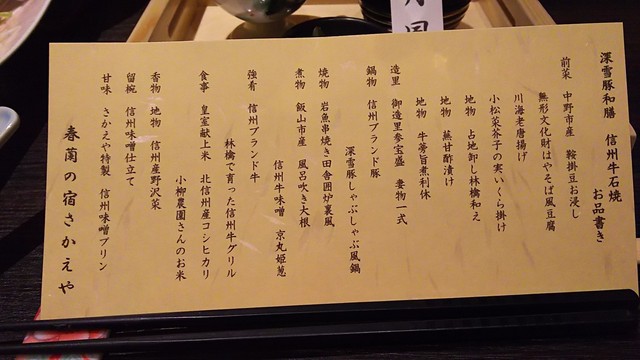 深雪豚和膳　信州牛石焼
お品書き
前菜　中野市産　鞍掛豆お浸し
無形文化財はやそば風豆腐
川海老唐揚げ
小松菜茶子の実いくら掛け
地物　占地卸し林檎和え
地物　蕪甘酢漬け
地物　牛蒡旨煮利休
造里　御造里参宝盛　妻物一式
鍋物　信州ブランド豚
深雪豚しゃぶしゃぶ風鍋
焼物　岩魚串焼き田舎囲炉裏風
煮物　飯山市産　風呂吹き大根
信州牛味噌　京丸姫葱
強肴　信州ブランド牛
林檎で育った信州牛グリル
食事　皇室献上米　北信州産コシヒカリ
小柳農園さんのお米
香物　地物　信州産野沢菜
留椀　信州味噌仕立て
甘味　さかえや特製　信州味噌プリン
春蘭の宿さかえや